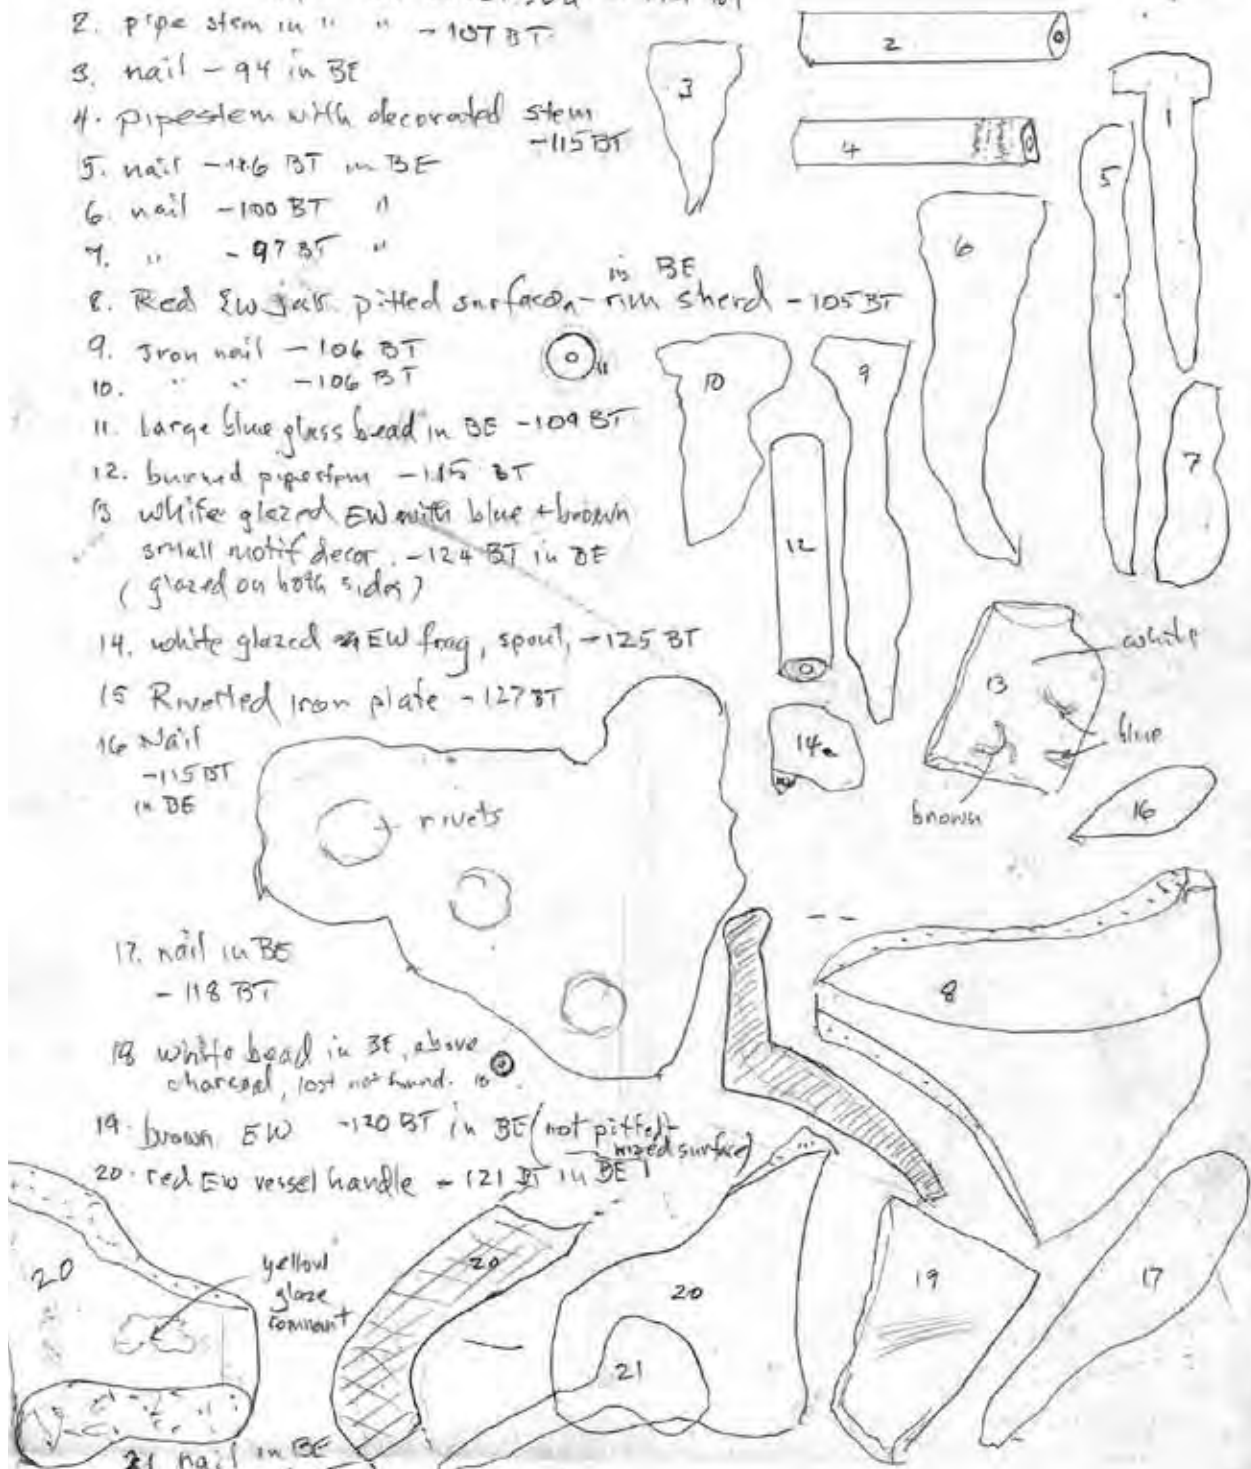 2. pipe stem in " " - 107 BT
3. nail - 94 in BE
4. pipestem with decorated stem
-115 BT
5. nail - BT in BE
6. nail -100 BT "
7. " -97 BT "
in BE
8. Red EW pitted surface - rim sherd - 105 BT
9. Iron nail - 106 BT
10. " " -106 BT
11. Large blue glass bead in BE -109 BT
12. burned pipestem -115 BT
13 white glazed EW with blue + brown
small motif decor. -124 BT in BE
(glazed on both sides)
14. white glazed EW frag, spout, -125 BT
15 Rivetted iron plate -127 BT
16 Nail
-115 BT
in BE
17. nail in BE
- 118 BT
18 white bead in BE, above
charcoal, lost not found.
19. brown EW -120 BT in BE (not pitted -
surface)
20. red EW vessel handle - 121 BT in BE
21 nail in BE
2
3
1
4
5
6
11
10
9
7
12
white
13
14
blue
brown
16
rivets
8
18
20
yellow
glaze
remnant
20
20
21
19
17